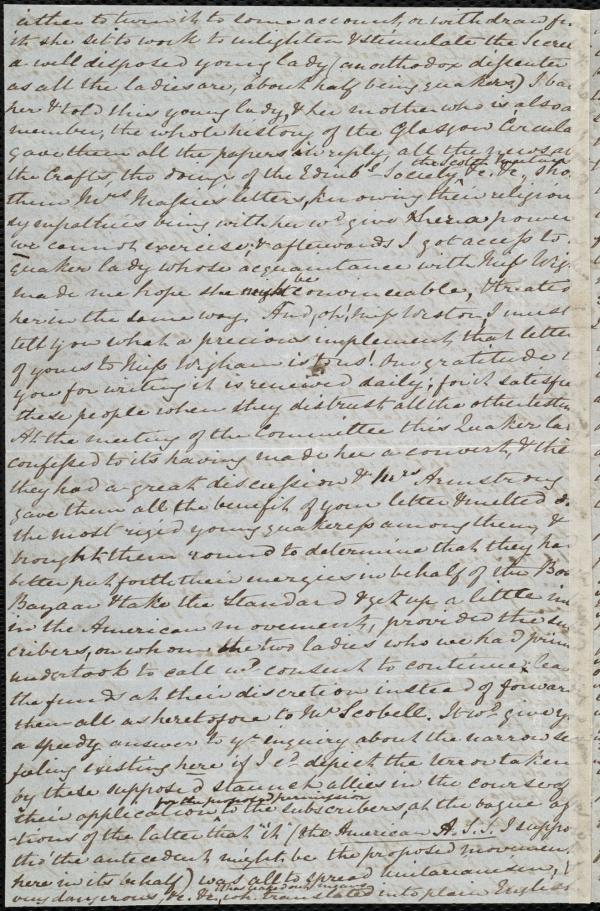 either to turn it to some account, or withdraw fr
it she set to work to enlighten & stimulate the Secre
a well disposed young lady (an orthodox dissenter
as all the ladies are, about half being quakers.) I ba
her & told this young lady, & her mother who is also a
member, the whole history of the Glasgow Circula
gave them all the papers in reply, all the news ab
the Crafts, the doings of the Edinbg. Society, &c, &c, sho
them Mrs Massie's letters, knowing their religion
sympathies being with her wd. give her a power
we cannot exercise, & afterwards I got access to
Quaker lady whose acquaintance with Miss Wig
made me hope she might be convinceable, & treated
her in the same way. And, oh! Miss Weston, I must
tell you what a precious implement that letter
of yours to Miss Wigham is to us! Our gratitude t
you for writing it is renewed daily; for it satisfie
these people when they distrust all the other testim
At the meeting of the Committee this Quaker la
confessed to its having made her a convert, & the
they had a great discussion & Mrs Armstrong
gave them all the benefit of your letter & melted d
the most rigid young quakeress among them, &
brought them round to determine that they ha
better put forth their energies in behalf of the Bos
Bazaar & take the Standard & get up a little in
in the American movement, provided the su
cribers, on whom the two ladies who we had prim
undertook to call wd. consent to continue, lea
the funds at their discretion instead of forwar
them all as heretofore to Mr Scobell. It wd. give y
a speedy answer to yr. inquiry about the narrow se
feeling existing here if I cd. depict the terror taken
by these supposed staunch allies in the course of
their application to the subscribers, at the vague ag
for the proposed permission
-tions of the latter that "it" (the American A.S.S. I suppo
tho' the antecedent might be the proposed movemen
here in its behalf) was all to spread unitarianism,
very dangerous, &c. &c, wh. translated into plain English